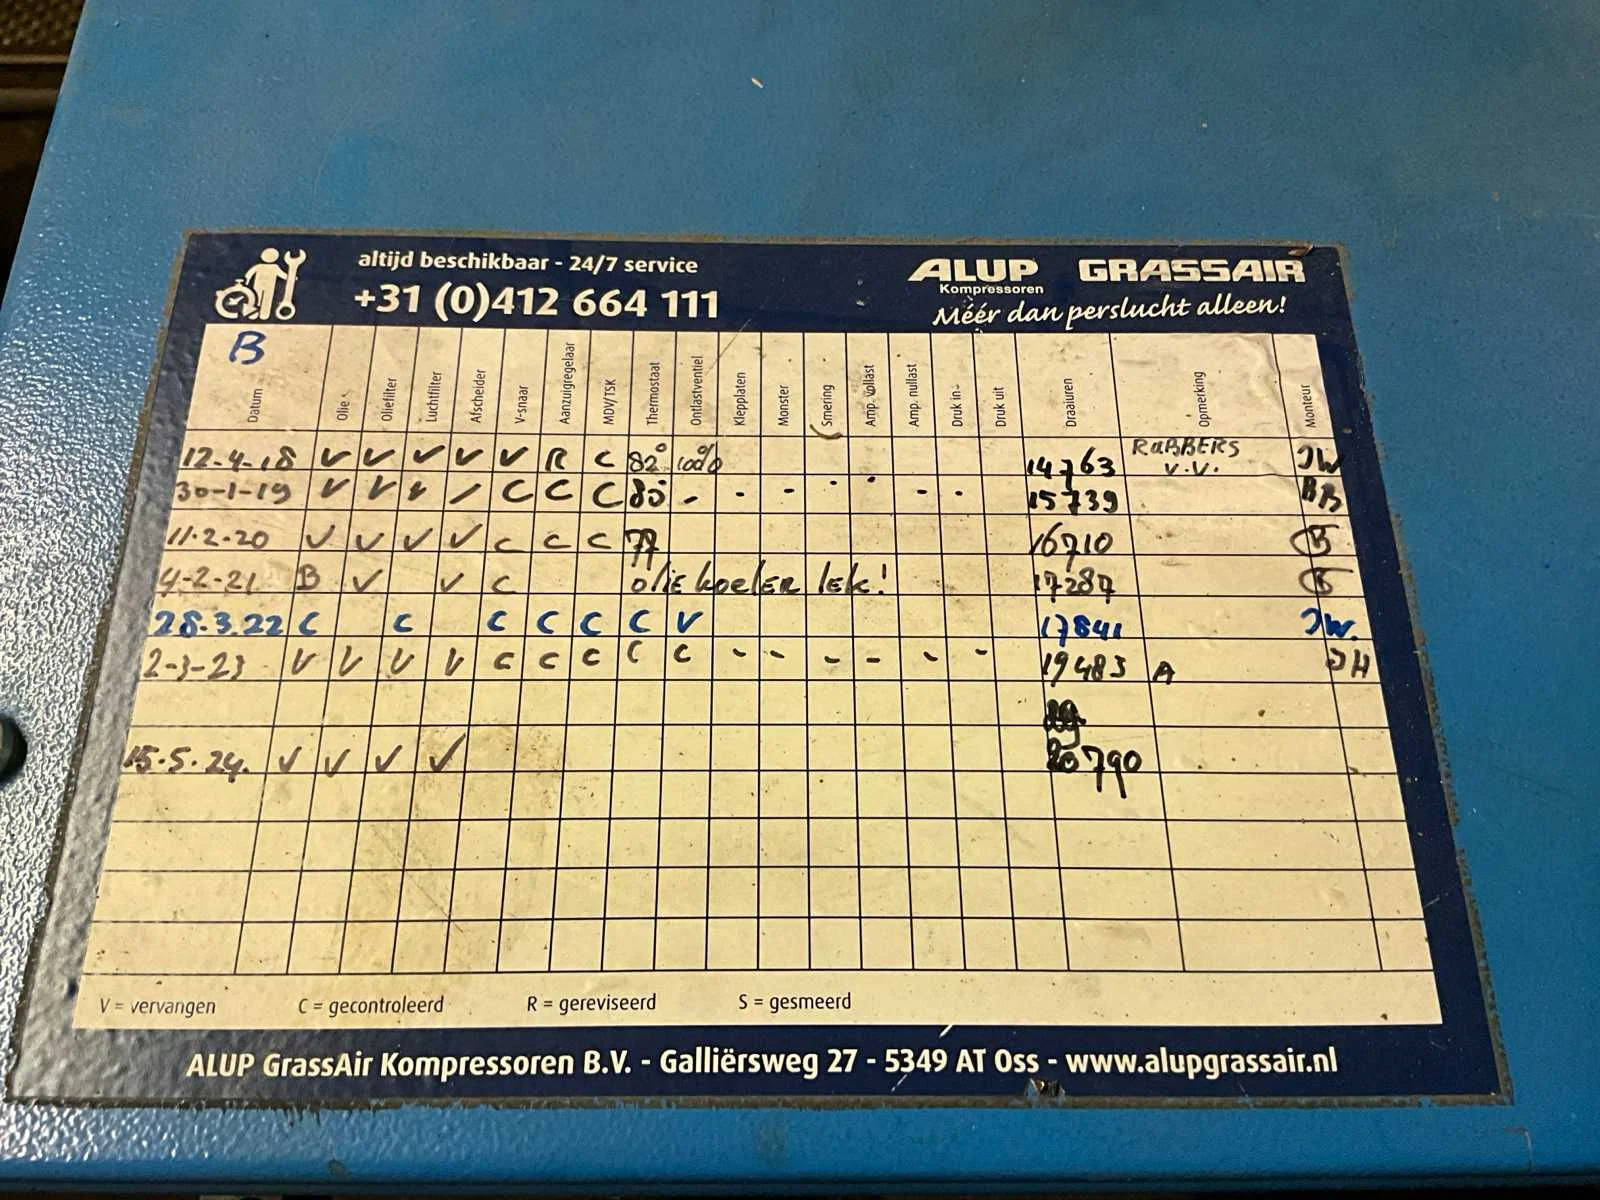 altijd beschikbaar - 24/7 service
+31 (0)412 664 111
ALUP Kompressoren GRASSAIR
Méér dan perslucht alleen!
B
Datum Olie Oliefilter Luchtfilter Afscheider V-snaar Aanzuigregelaar MDV/TSK Thermostaat Ontlastventiel Klepplaten Monster Smering Amp. vollast Amp. nullast Druk in Druk uit Draaiuren Opmerking Monteur
12-4-18 V V V V V R C 82° 100% 14763 RUBBERS V.V. JW
30-1-19 V V V / C C C 80 - - - - - - - 15739 BB
11-2-20 V V V V C C C 77 16710 B
4-2-21 B V V C OLIE koeler lek! 17287 B
28.3.22 C C C C C C V 17841 JW.
2-3-23 V V V V C C C C C - - - - - - 19483 A JH
15.5.24. V V V V 20790
V = vervangen C = gecontroleerd R = gereviseerd S = gesmeerd
ALUP GrassAir Kompressoren B.V. - Galliërsweg 27 - 5349 AT Oss - www.alupgrassair.nl